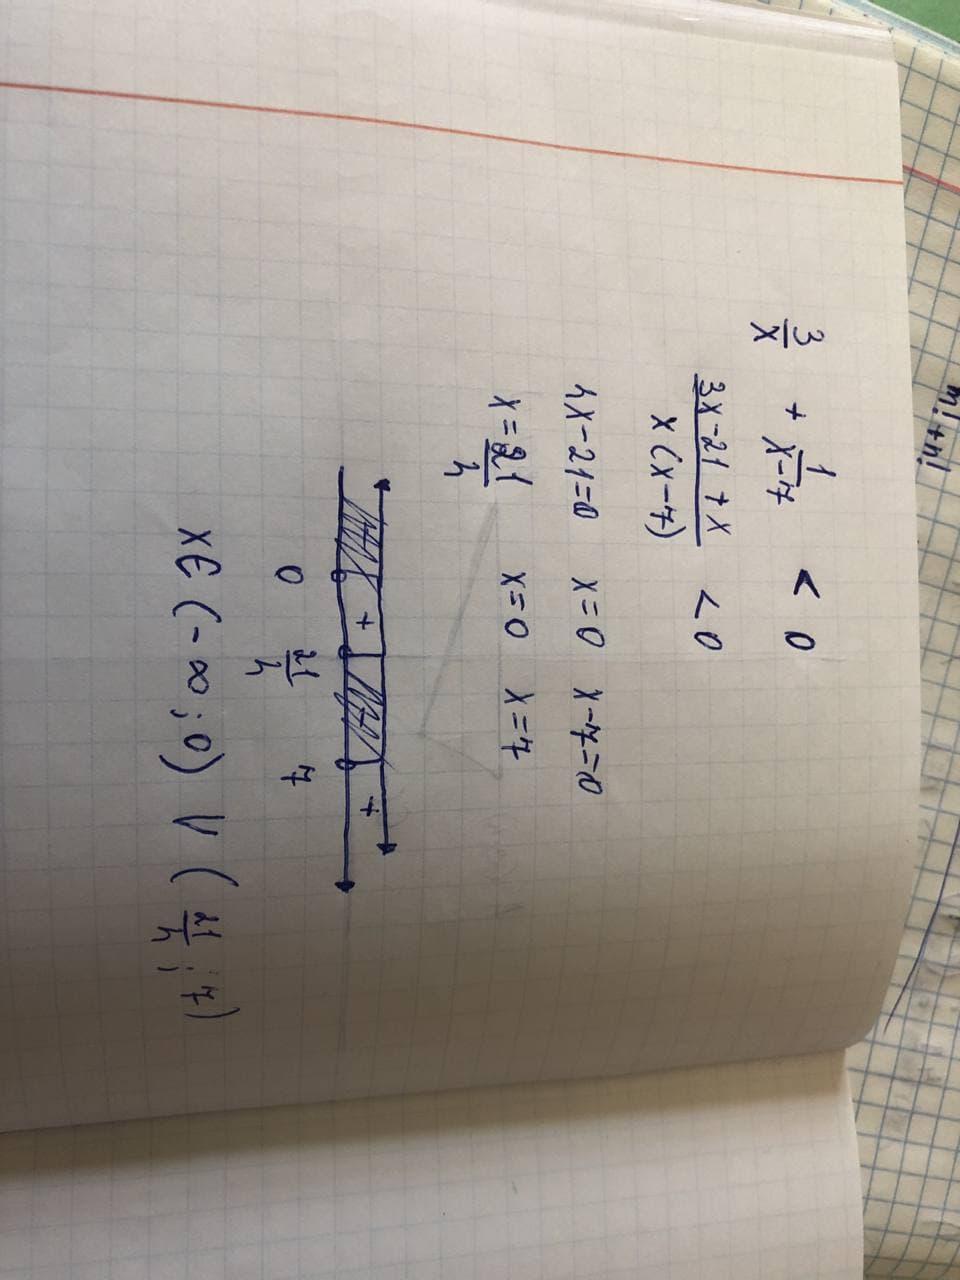 3/x + 1/(x-7) < 0
(3x-21+x)/(x(x-7)) < 0
4x-21=0 x=0 x-7=0
x=21/4 x=0 x=7
+ +
0 21/4 7
x∈(-∞;0) V (21/4;7)